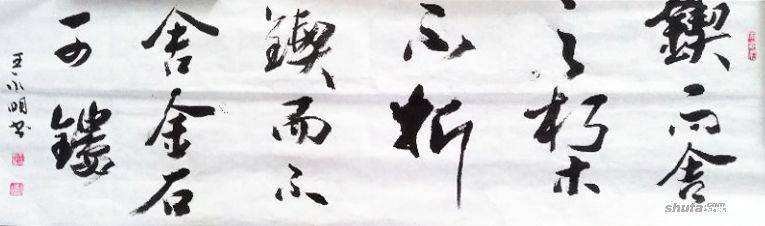 鍥而舍
之朽木
不折
鍥而不
舍金石
可鏤
王小明书
shufa.com